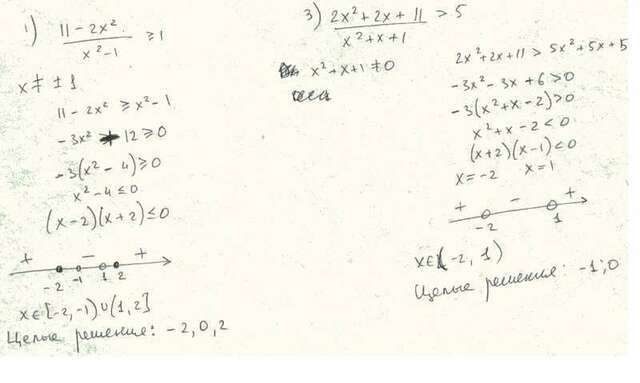 1) (11 - 2x²)/(x² - 1) ≥ 1
x ≠ ± 1
11 - 2x² ≥ x² - 1
-3x² + 12 ≥ 0
-3(x² - 4) ≥ 0
x² - 4 ≤ 0
(x - 2)(x + 2) ≤ 0
+ - +
-2 -1 1 2
x ∈ [-2, -1) ∪ (1, 2]
Целые решение: -2, 0, 2
3) (2x² + 2x + 11)/(x² + x + 1) > 5
x² + x + 1 ≠ 0
2x² + 2x + 11 > 5x² + 5x + 5
-3x² - 3x + 6 > 0
-3(x² + x - 2) > 0
x² + x - 2 < 0
(x + 2)(x - 1) < 0
x = -2 x = 1
+ - +
-2 1
x ∈ (-2, 1)
Целые решение: -1; 0